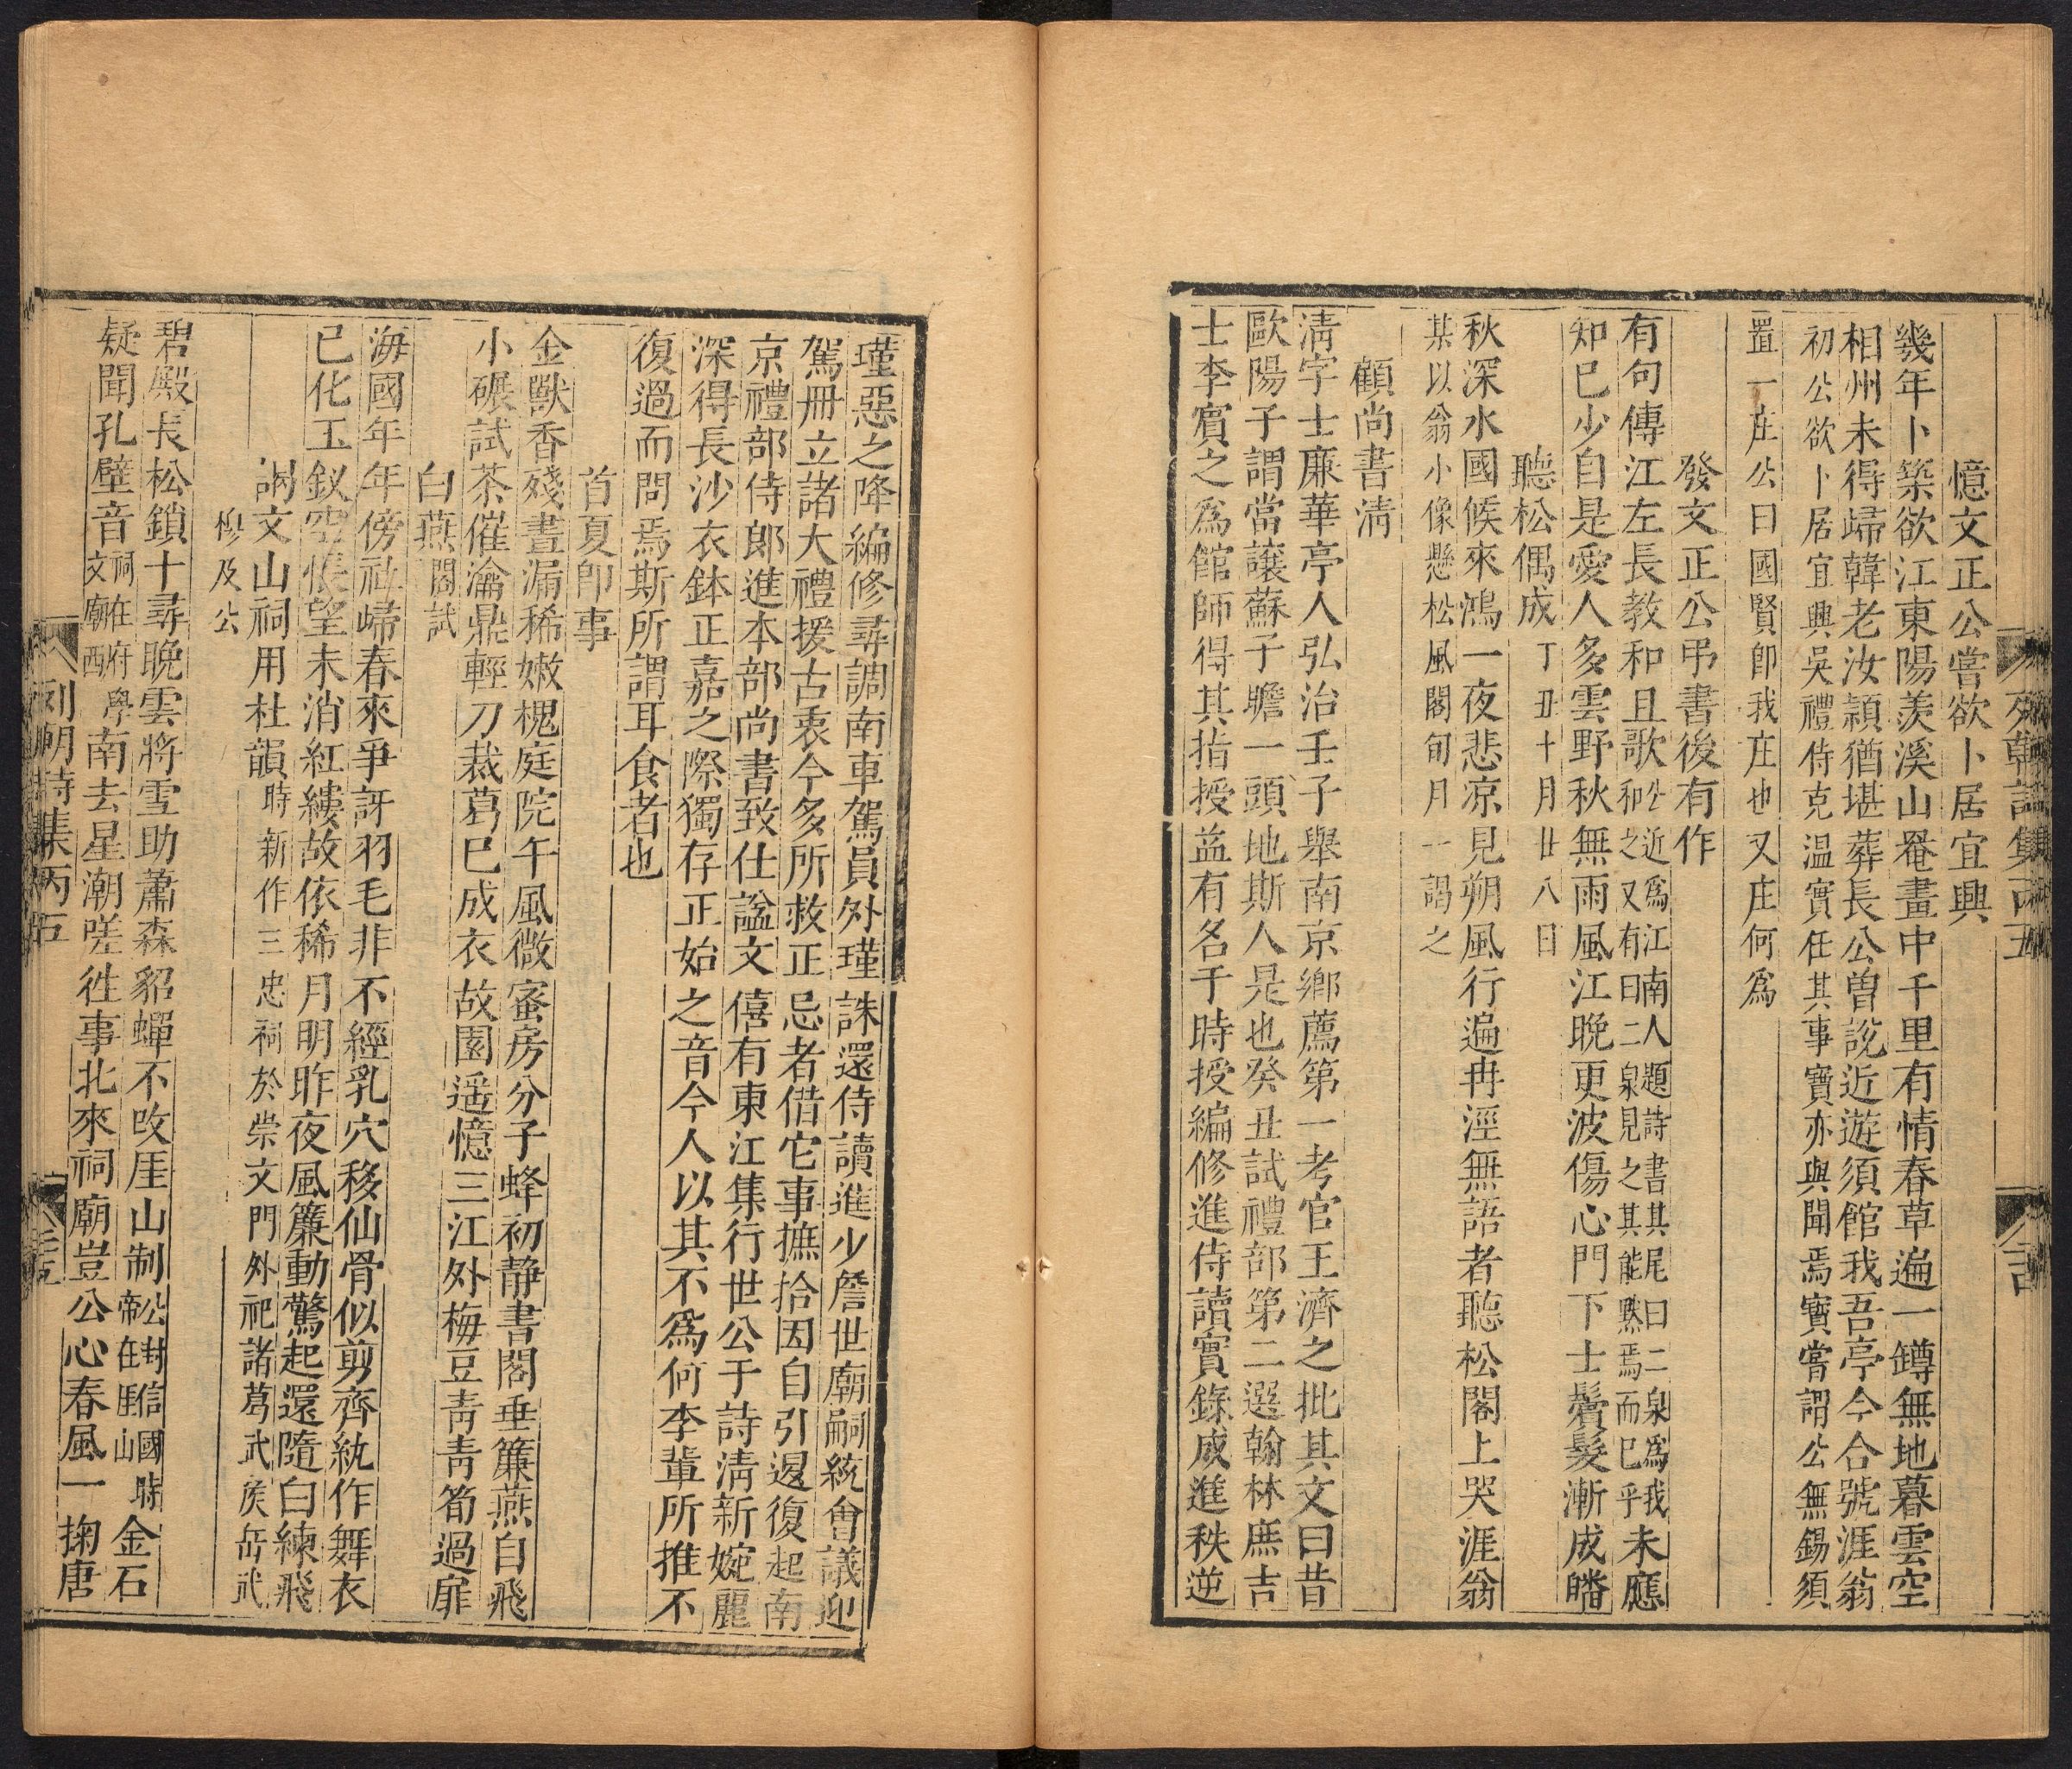 列朝詩集丙五
憶文正公嘗欲卜居宜興
幾年卜築欲江東陽羨溪山罨畫中千里有情春草遍一罇無地暮雲空
相州未得歸韓老汝潁猶堪葬長公曾說近遊須館我吾亭今合號涯翁
初公欲卜居宜興吳禮侍克溫實任其事寶亦與聞焉寶嘗謂公無錫須
置一庄公曰國賢卽我庄也又庄何爲
發文正公弔書後有作
有句傳江左長教和且歌公近爲江南人題詩書其尾曰二泉爲我和之又有曰二泉見之其能黙焉而已乎未應
知已少自是愛人多雲野秋無雨風江晚更波傷心門下士鬢髮漸成皤
聽松偶成丁丑十月廿八日
秋深水國候來鴻一夜悲凉見朔風行遍冉涇無語者聽松閣上哭涯翁
某以翁小像懸松風閣旬月一謁之
顧尚書淸
淸字士廉華亭人弘治壬子舉南京鄉薦第一考官王濟之批其文曰昔
歐陽子謂當讓蘇子瞻一頭地斯人是也癸丑試禮部第二選翰林庶吉
士李賓之爲館師得其指授益有名于時授編修進侍讀實錄成進秩逆
瑾惡之降編修尋調南車駕員外瑾誅還侍讀進少詹世廟嗣統會議迎
駕冊立諸大禮援古衷今多所救正忌者借它事摭拾因自引退復起南
京禮部侍郞進本部尚書致仕諡文僖有東江集行世公于詩淸新婉麗
深得長沙衣鉢正嘉之際獨存正始之音今人以其不爲何李輩所推不
復過而問焉斯所謂耳食者也
首夏卽事
金獸香殘晝漏稀嫩槐庭院午風微蜜房分子蜂初静書閣垂簾燕自飛
小碾試茶催瀹鼎輕刀裁葛已成衣故園遥憶三江外梅豆靑靑筍過扉
白燕閣試
海國年年傍社歸春來爭訝羽毛非不經乳穴移仙骨似剪齊紈作舞衣
已化玉釵空悵望未消紅縷故依稀月明昨夜風簾動驚起還隨白練飛
謁文山祠用杜韻時新作三忠祠於崇文門外祀諸葛武侯岳武
穆及公
碧殿長松鎖十尋晚雲將雪助蕭森貂蟬不改厓山制公封信國時帝在厓山金石
疑聞孔壁音祠在府學文廟西南去星潮嗟徃事北來祠廟豈公心春風一掬唐
列朝詩集丙五